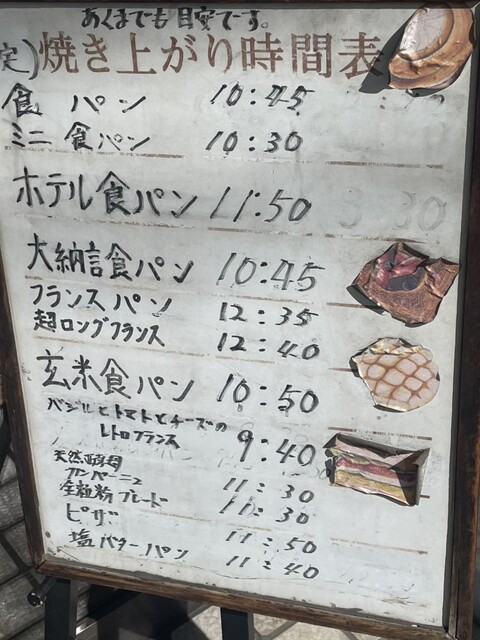 あくまでも目安です。
定)焼き上がり時間表
食パン 10:45
ミニ食パン 10:30
ホテル食パン 11:50
大納言食パン 10:45
フランスパン 12:35
超ロングフランス 12:40
玄米食パン 10:50
バジルとトマトとチーズの
レトロフランス 9:40
天然酵母
カンパーニュ 11:30
全粒粉ブレード 11:30
ピザ 11:50
塩バターパン 11:40